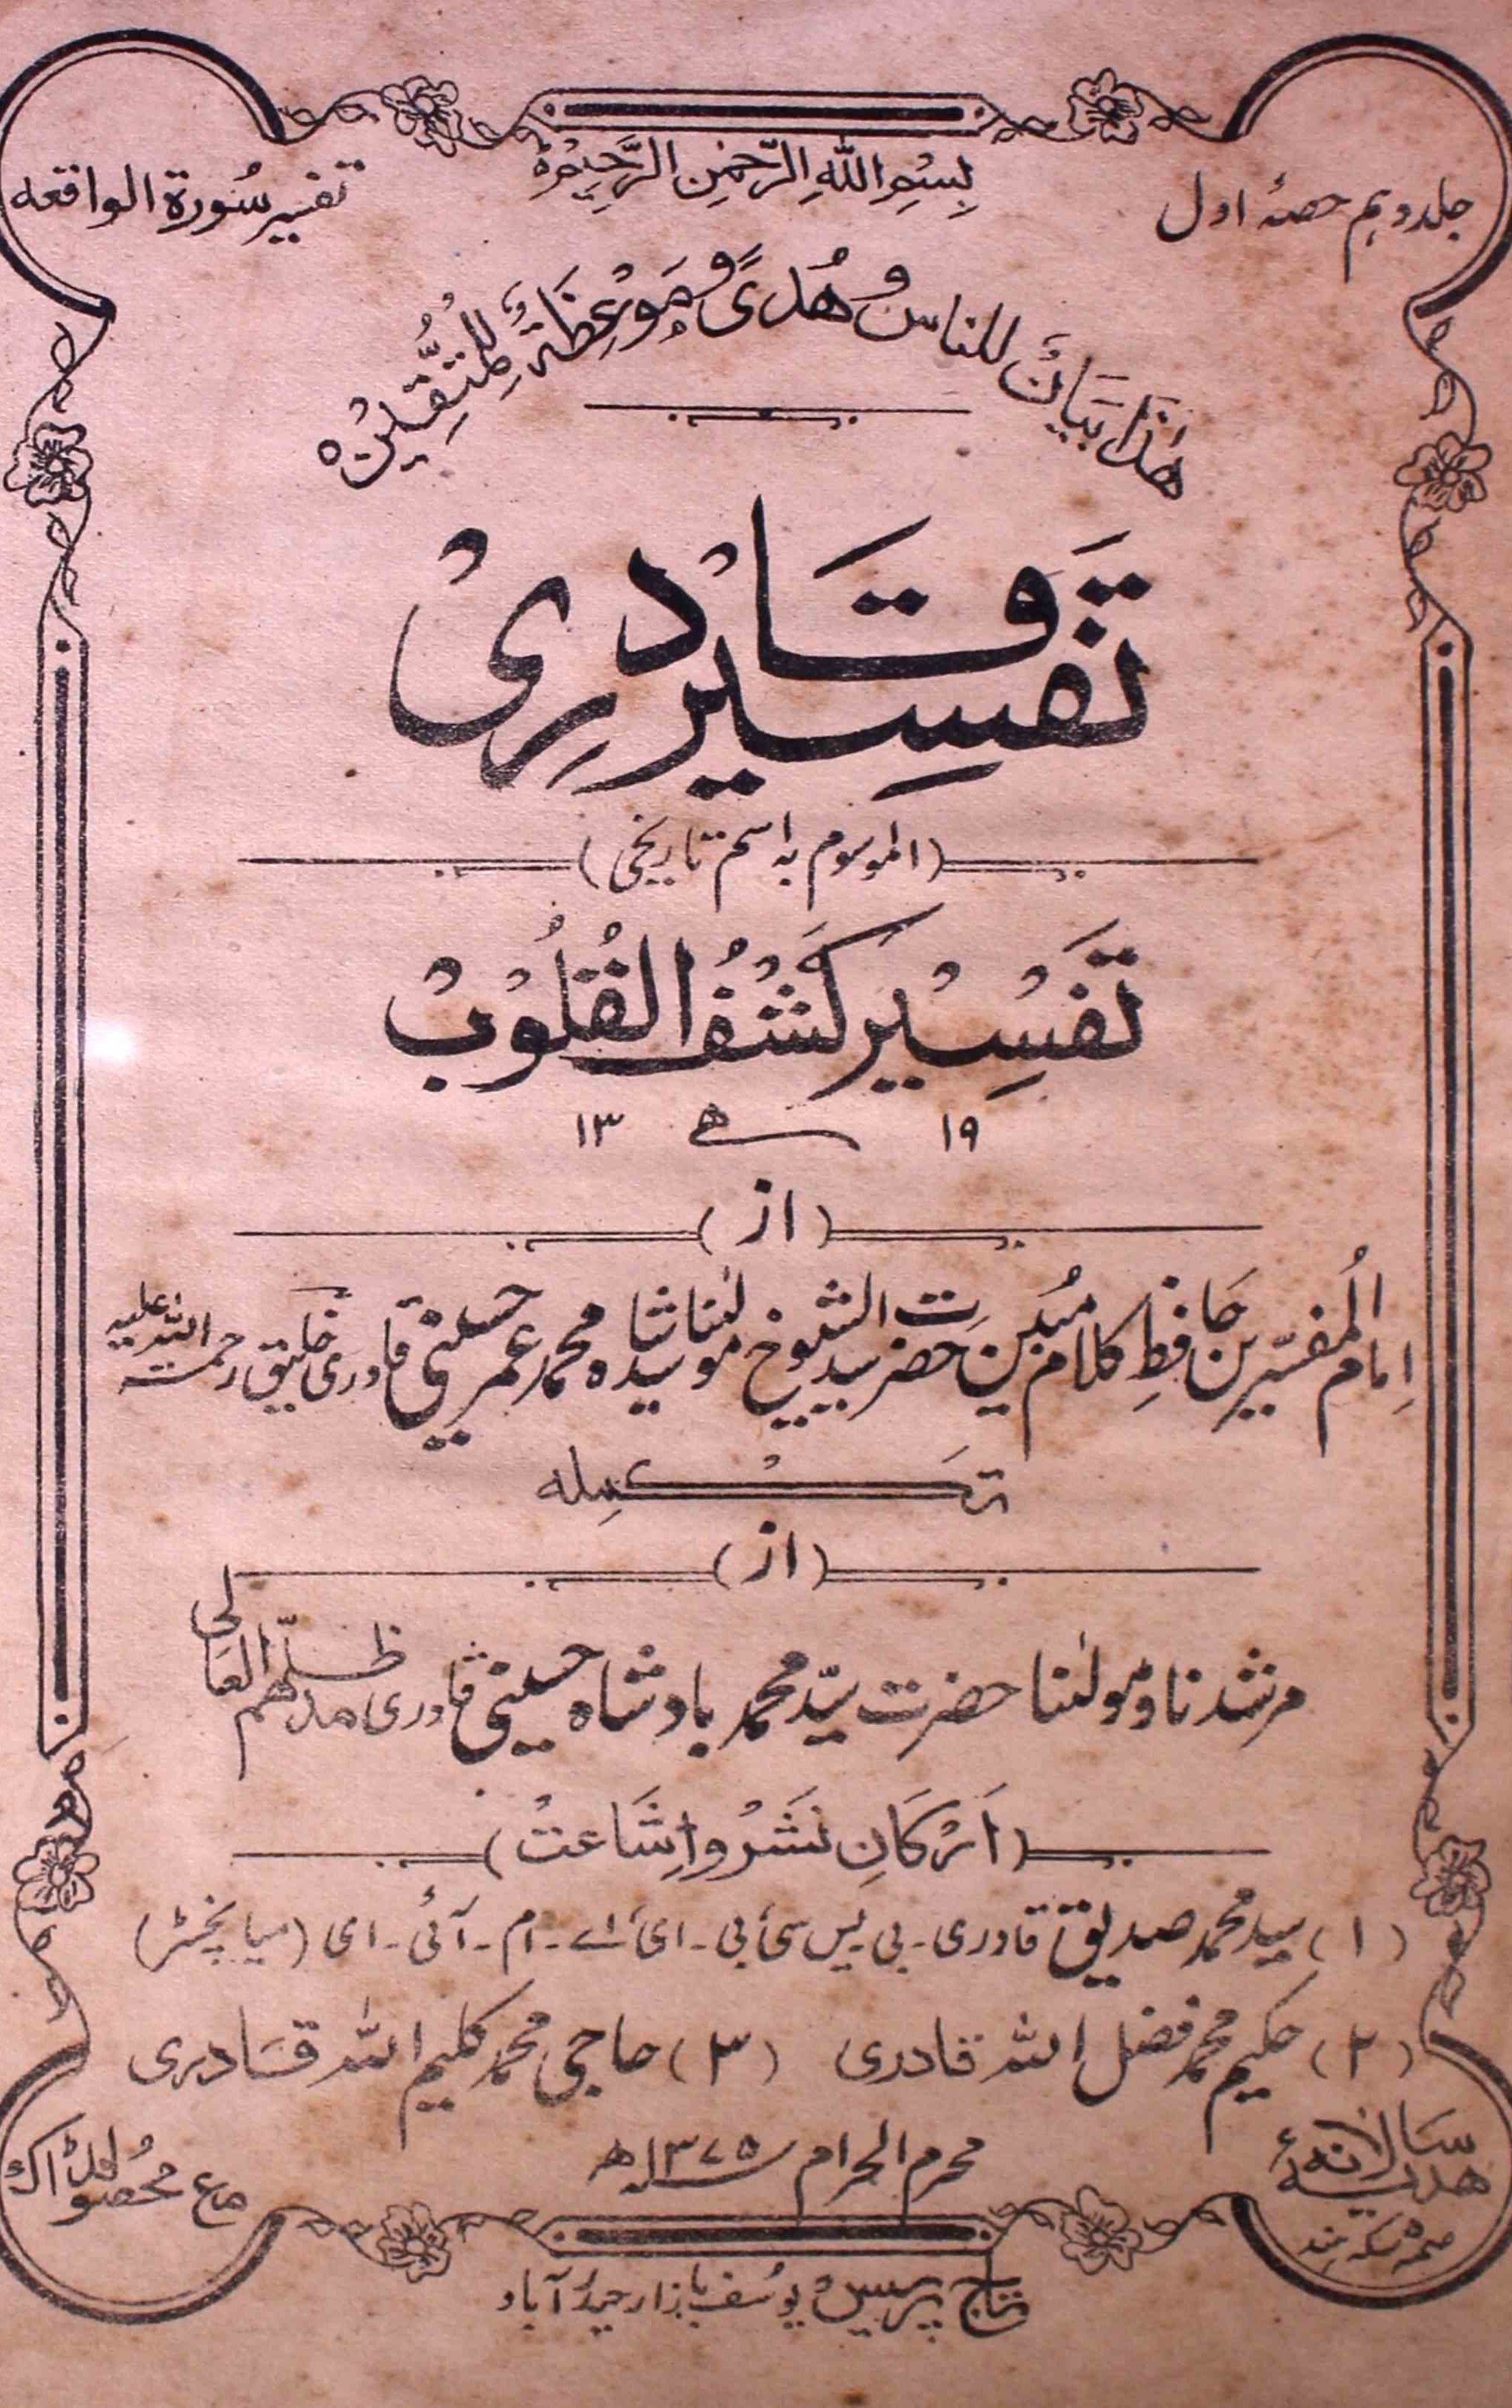 جلد دہم حصۂ اول
بِسْمِ اللّٰہِ الرَّحْمٰنِ الرَّحِیْمِ ہ
تفسیر سُورۃ الواقعہ
ھٰذَا بَیَانٌ للناس وَ ھُدًی وَّ مَوْعِظَۃٌ لِّلْمُتَّقِیْنَ ہ
تَفسِیر قَادْرِیْ
(الموسوم بہ اسم تاریخی)
تَفْسِیْر کَشْفُ الْقُلُوْبْ
۱۹ ھ ۱۳
(از)
اِمامُ المفسّرین حَافظِ کلام مُبین حضرت سید الشیوخ مولٰنا سید شاہ محمد عمر حسینی قادری خلیق رحمۃ اللہ علیہ
تَکْمِلہ
(از)
مرشدنا و مولٰنا حضرت سیّد محمد بادشاہ حسینی قادری مدظلّھم العَالی
(اَرْکَانِ نَشَرْ و اِشَاعَتْ)
(۱) سید محمد صدیق قادری - بی یس سی بی - ای اے - ام - آئی - ای (میانچسٹر)
(۲) حکیم محمد فضل اللہ قادری (۳) حاجی محمد کلیم اللہ قَادری
سَالانہ ھدیۂ
سکہ ہند
محرم الحرام ۱۳۷۵ھ
مع محصُول ڈاک
تاج پریس یوسُف بازار حیدرآباد